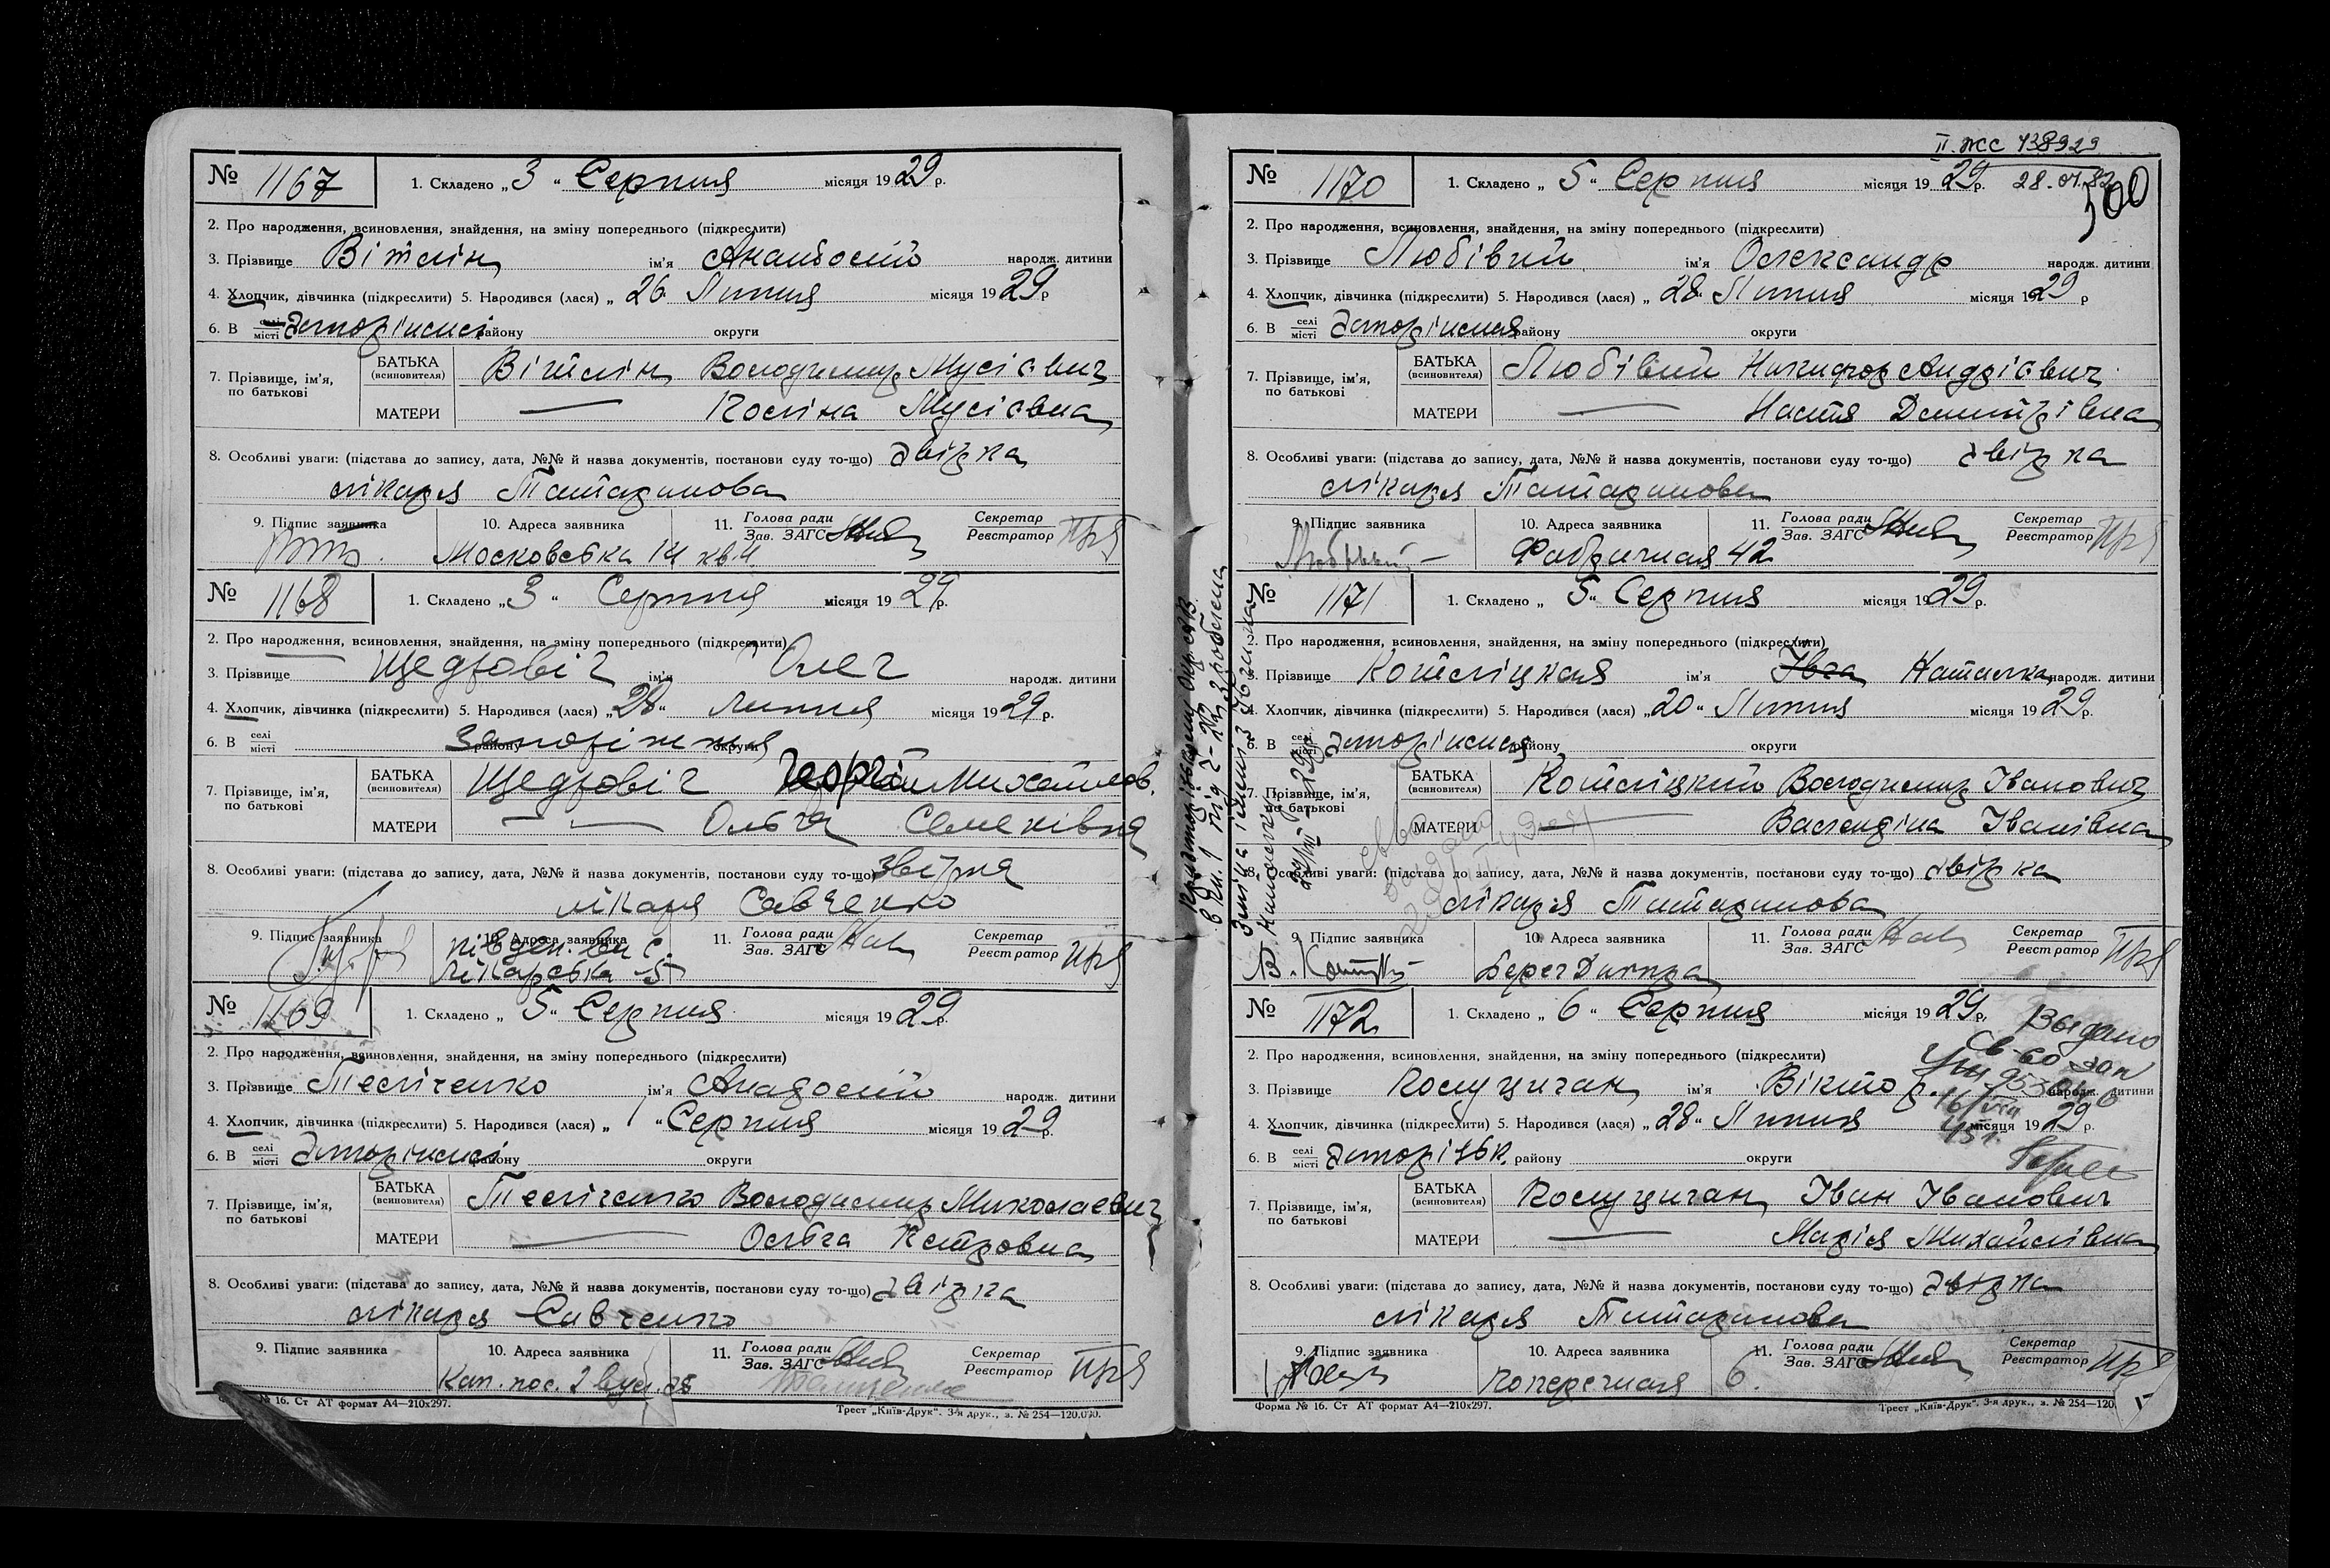 № 1167 1. Складено „3“ Серпня місяця 1929 р.
2. Про народження, всиновлення, знайдення, на зміну попереднього (підкреслити)
3. Прізвище Вітлін ім’я Анатолій народж. дитини
4. Хлопчик, дівчинка (підкреслити) 5. Народився (лася) „26“ Липня місяця 1929 р
6. В селі місті Запоріжжі району округи
7. Прізвище, ім’я, по батькові БАТЬКА (всиновителя) Вітлін Володимир Мусієвич
МАТЕРИ — Мусієвна
8. Особливі уваги: (підстава до запису, дата, №№ й назва документів, постанови суду то-що) Довідка
лікаря Татаринова
9. Підпис заявника 10. Адреса заявника 11. Голова ради Зав. ЗАГС Секретар Реєстратор
Московська 14 кв. 4
№ 1168 1. Складено „3“ Серпня місяця 1929 р.
2. Про народження, всиновлення, знайдення, на зміну попереднього (підкреслити)
3. Прізвище Щедровіч ім’я Олег народж. дитини
4. Хлопчик, дівчинка (підкреслити) 5. Народився (лася) „28“ Липня місяця 1929 р.
6. В селі місті Запоріжжя району округи
7. Прізвище, ім’я, по батькові БАТЬКА (всиновителя) Щедровіч Георгій Михайлов.
МАТЕРИ — Ольга Семенівна
8. Особливі уваги: (підстава до запису, дата, №№ й назва документів, постанови суду то-що)
лікаря Савченко
9. Підпис заявника 10. Адреса заявника 11. Голова ради Зав. ЗАГС Секретар Реєстратор
Південн. сел.
Лікарська 5
№ 1169 1. Складено „5“ Серпня місяця 1929 р.
2. Про народження, всиновлення, знайдення, на зміну попереднього (підкреслити)
3. Прізвище Тесліченко ім’я Анадолій народж. дитини
4. Хлопчик, дівчинка (підкреслити) 5. Народився (лася) „1“ Серпня місяця 1929 р.
6. В селі місті Запоріжжі району округи
7. Прізвище, ім’я, по батькові БАТЬКА (всиновителя) Тесліченко Володимир Миколаевич
МАТЕРИ — Ольга Петровна
8. Особливі уваги: (підстава до запису, дата, №№ й назва документів, постанови суду то-що) Довідка
лікаря Савченко
9. Підпис заявника 10. Адреса заявника 11. Голова ради Зав. ЗАГС Секретар Реєстратор
Кап. пос. 2 вул.
№ 16. Ст АТ формат А4—210х297. Трест „Київ-Друк“. 3-я друк., з. № 254—120.000.
II. ЖС 738929
№ 1170 1. Складено „5“ Серпня місяця 1929 р. 28.01.82
500
2. Про народження, всиновлення, знайдення, на зміну попереднього (підкреслити)
3. Прізвище Любівий ім’я Олександр народж. дитини
4. Хлопчик, дівчинка (підкреслити) 5. Народився (лася) „28“ Липня місяця 1929 р
6. В селі місті Запоріжжя району округи
7. Прізвище, ім’я, по батькові БАТЬКА (всиновителя) Любівий Никифор Андрієвич
МАТЕРИ — Настя Дмитрівна
8. Особливі уваги: (підстава до запису, дата, №№ й назва документів, постанови суду то-що) Довідка
лікаря Татаринова
9. Підпис заявника 10. Адреса заявника 11. Голова ради Зав. ЗАГС Секретар Реєстратор
Фабричная 42
№ 1171 1. Складено „5“ Серпня місяця 1929 р.
2. Про народження, всиновлення, знайдення, на зміну попереднього (підкреслити)
3. Прізвище Котліцкая ім’я Івга Наталка народж. дитини
4. Хлопчик, дівчинка (підкреслити) 5. Народився (лася) „20“ Липня місяця 1929 р.
6. В селі місті Запоріжжя району округи
7. Прізвище, ім’я, по батькові БАТЬКА (всиновителя) Котліцкий Володимир Іванович
МАТЕРИ — Валендіна Іванівна
8. Особливі уваги: (підстава до запису, дата, №№ й назва документів, постанови суду то-що) Довідка
лікаря Татаринова
9. Підпис заявника 10. Адреса заявника 11. Голова ради Зав. ЗАГС Секретар Реєстратор
Берег Дніпра
№ 1172 1. Складено „6“ Серпня місяця 1929 р.
Выдано
2. Про народження, всиновлення, знайдення, на зміну попереднього (підкреслити)
3. Прізвище Колуциган ім’я Віктор народж. дитини
4. Хлопчик, дівчинка (підкреслити) 5. Народився (лася) „28“ Липня місяця 1929 р.
6. В селі місті району округи
7. Прізвище, ім’я, по батькові БАТЬКА (всиновителя) Колуциган Іван Іванович
МАТЕРИ — Марія Михайлівна
8. Особливі уваги: (підстава до запису, дата, №№ й назва документів, постанови суду то-що) Довідка
лікаря Татаринова
9. Підпис заявника 10. Адреса заявника 11. Голова ради Зав. ЗАГС Секретар Реєстратор
Поперечная 6.
Форма № 16. Ст АТ формат А4—210х297. Трест „Київ-Друк“. 3-я друк., з. № 254—120.